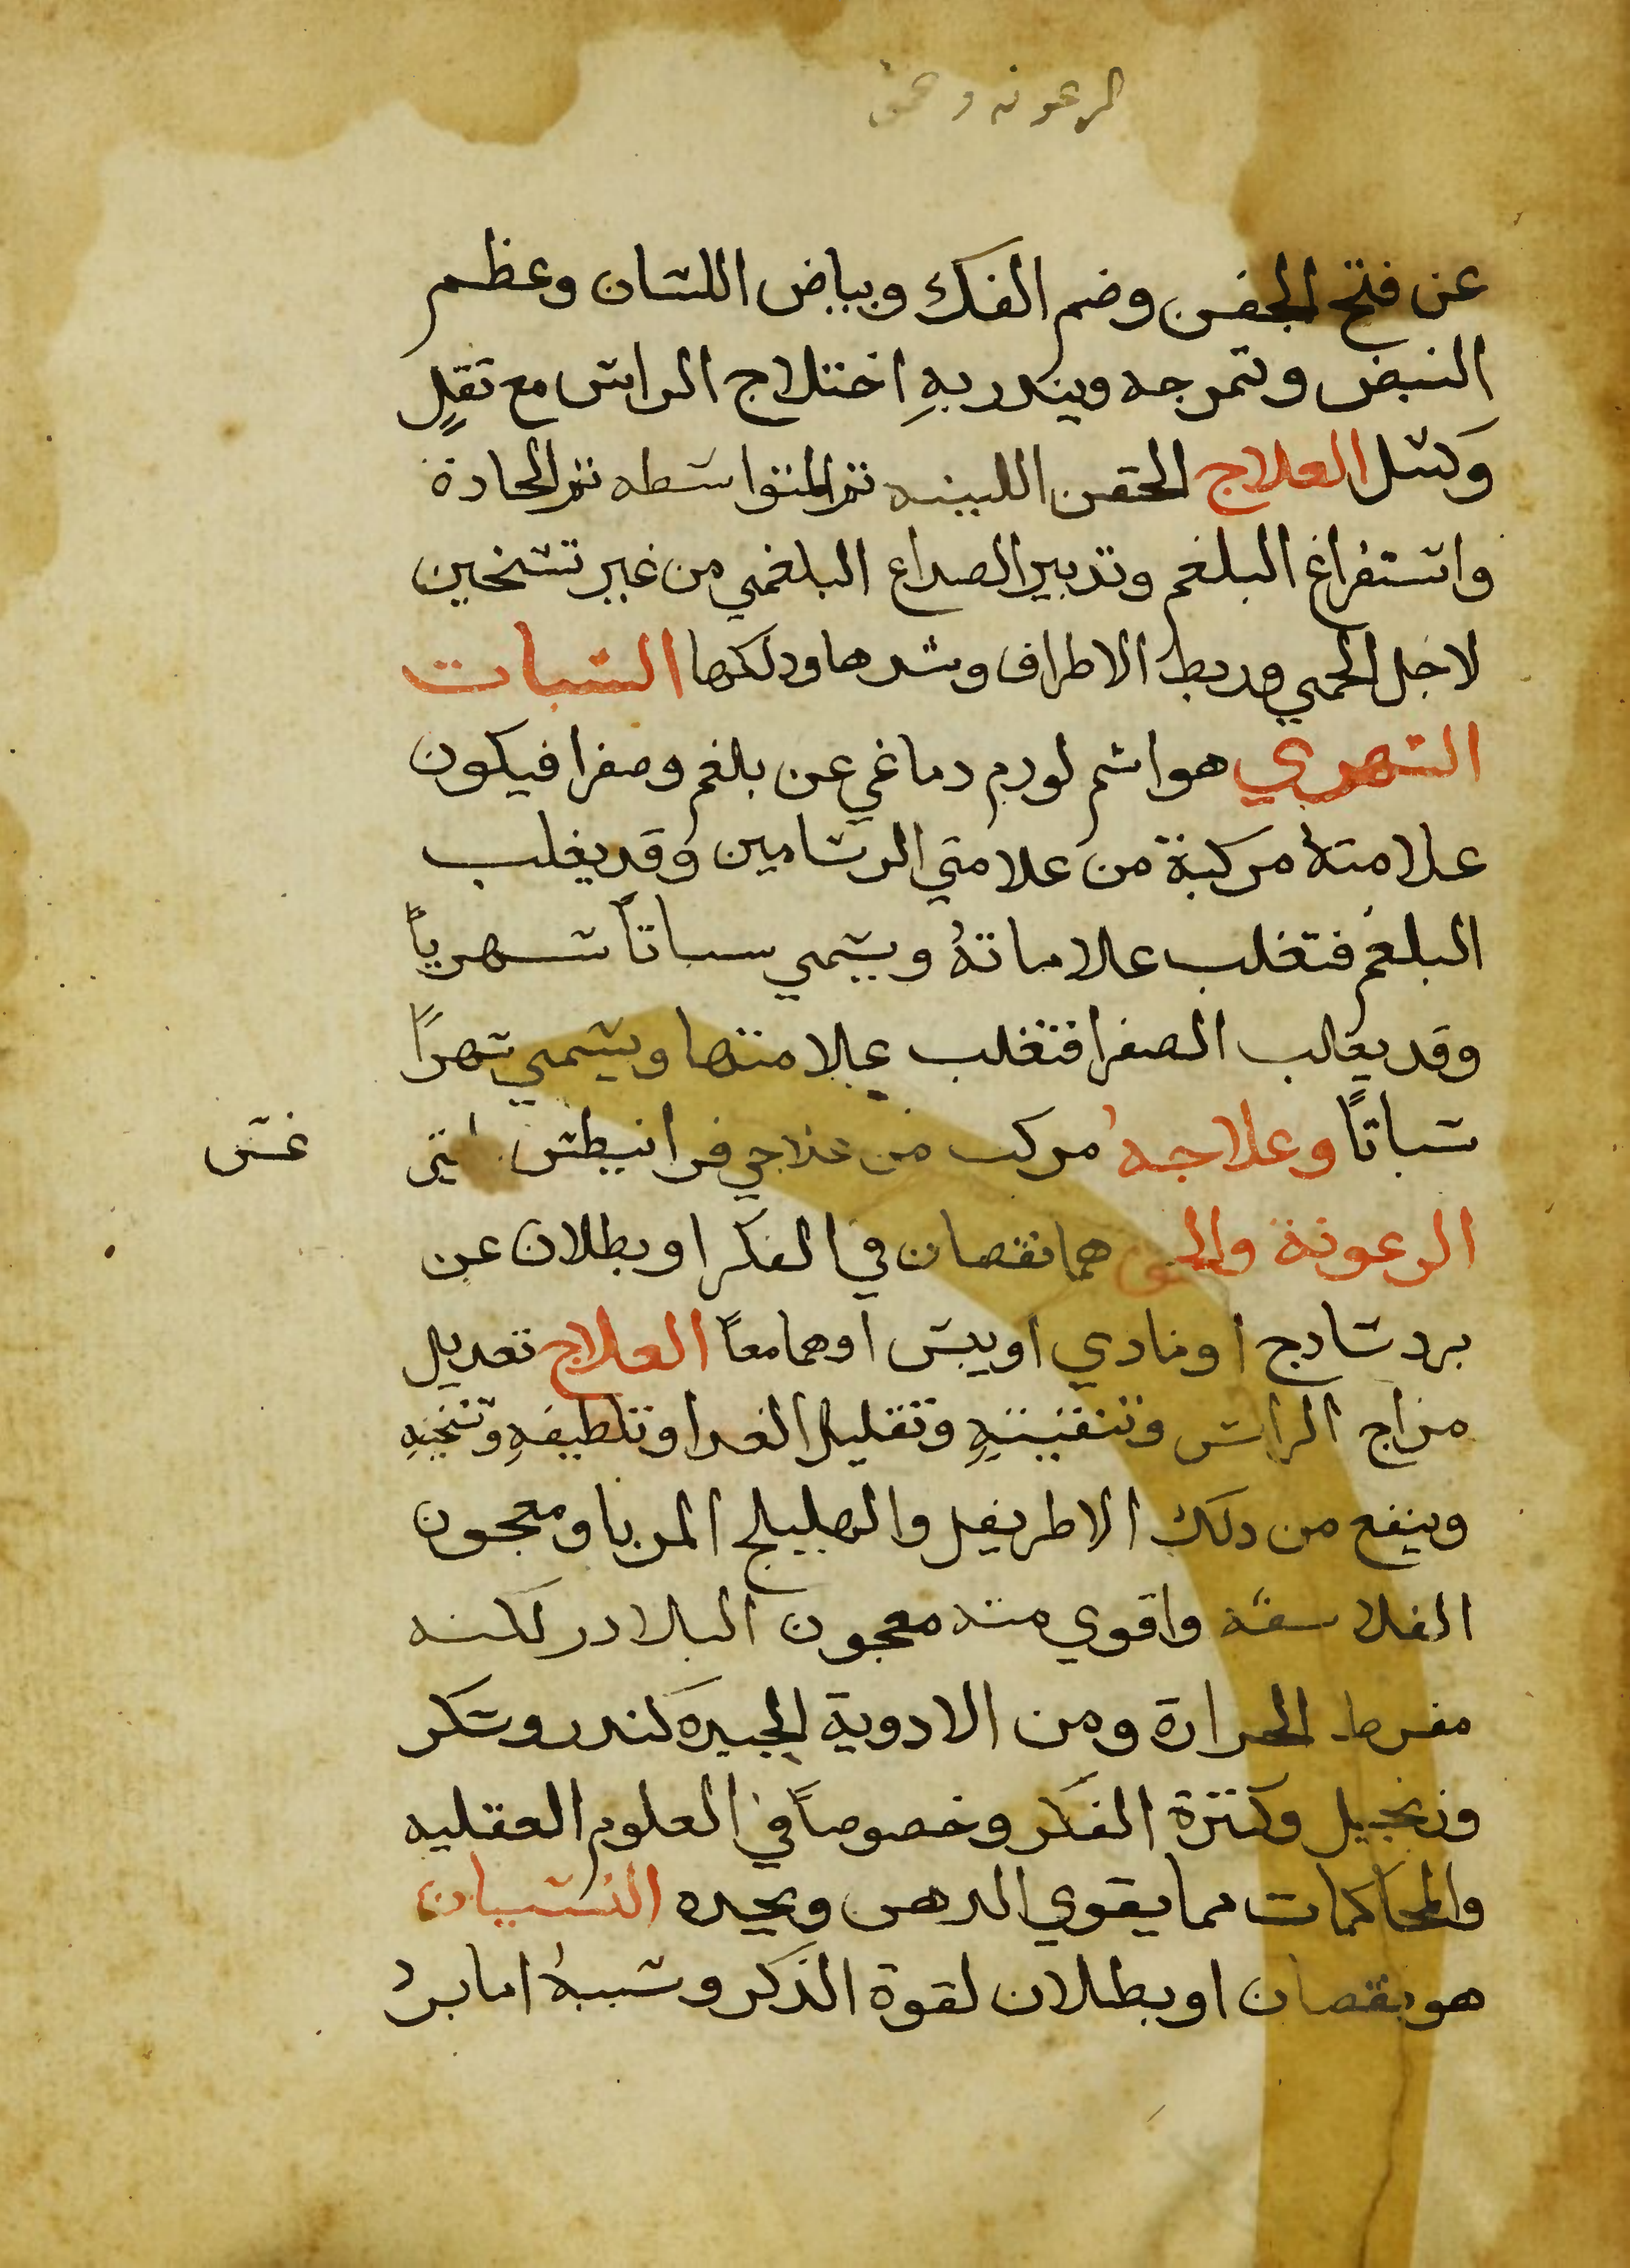 الرعونه وحمق
عن فتح الجفن وضم الفك وبياض اللسان وعظم
النبض وتموجه ويندر به اختلاج الراس مع ثقل
وكسل العلاج الحقن اللينه ثم المتواسطه ثم الحادة
واستفراغ البلغم وتدبير الصداع البلغمي من غير تسخين
لاجل الحمي وربط الاطراف وشدها ودلكها السبات
السهري هو اسم لورم دماغي عن بلغم وصفرا فيكون
علامته مركبة من علامتي الرسامين وقد يغلب
البلغم فتغلب علاماتهُ ويسمي سباتاً سهرياً
وقد يغلب الصفرا فتغلب علامتها ويسمي سهراً
سباتاً وعلاجهُ مركب من علاجي فرانيطس
غس
الرعونة والحمق هما نقصان في الفكر او بطلان عن
برد سادج او مادي او يبس او هما معاً العلاج تعديل
مزاج الراس وتنقيتهِ وتقليل الغدا وتلطيفهِ وتسخينهِ
وينفع من دلك الاطريفل والهليلج المربا ومعجون
الفلاسفه واقوي منه معجون البلادر لكنه
مفرط الحرارة ومن الادوية الجيده كندر وسكر
وزنجبيل وكثرة الفكر وخصوصاً في العلوم العقليه
والمحاكمات مما يقوي الدهن ويجيده النسيان
هو نقصان او بطلان لقوة الذكر وسببهُ اما برد